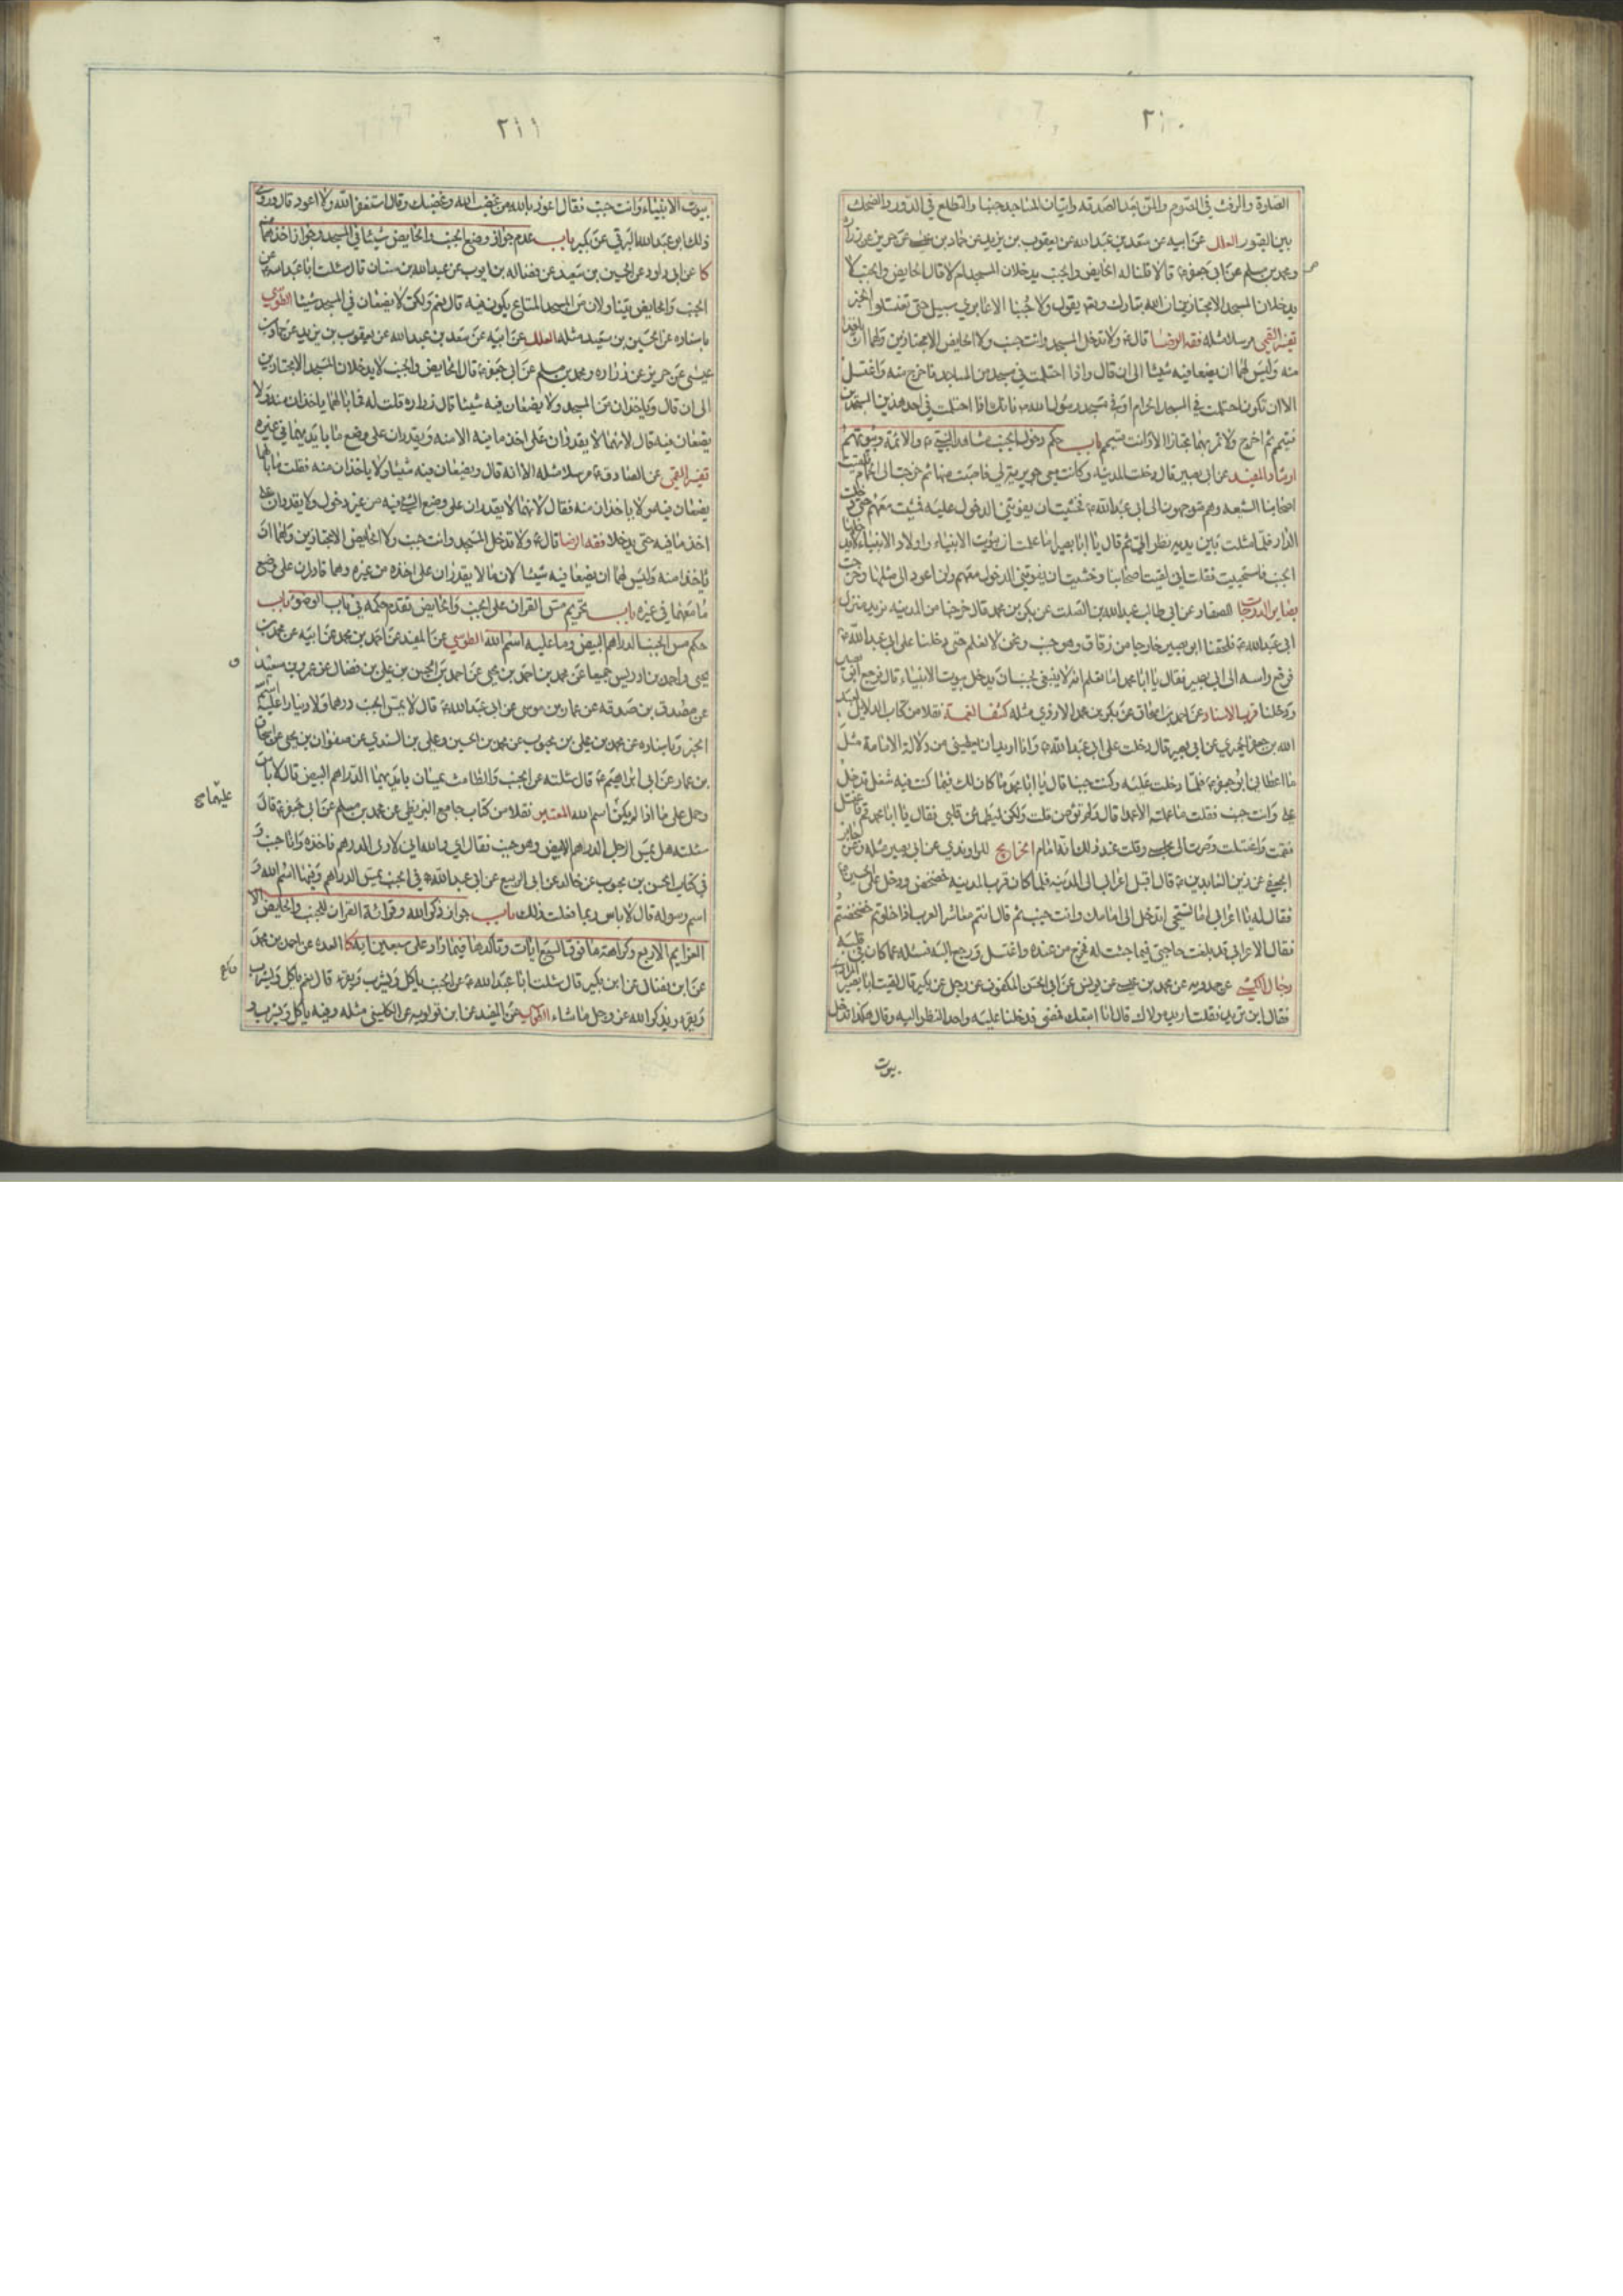 ٢١٠
الصلوة والرفث في الصوم والمن بعد الصدقه واتيان المساجد جنبا والتطلع في الدور والضحك
بين القبور العلل عن ابيه عن سعد بن عبد الله عن يعقوب بن يزيد عن حماد بن عيسى عن حريز عن زرارة
ومحمد بن مسلم عن ابي جعفر ع قالا قلنا له الحايض والجنب يدخلان المسجد ام لا قال الحايض والجنب لا
يدخلان المسجد الا مجتازين ان الله تبارك وتع يقول ولا جنبا الا عابري سبيل حتى تغتسلوا الخبر
تفسير القمي مرسلا مثله فقه الرضا قال ع ولا تدخل المسجد وانت جنب ولا الحايض الا مجتازين ولهما ان ياخذا
منه وليس لهما ان يضعا فيه شيئا الى ان قال واذا احتلمت في مسجد من المساجد فاخرج منه واغتسل
الا ان تكون احتلمت في المسجد الحرام او في مسجد رسول الله ص فانك اذا احتلمت في احد هذين المسجدين
فتيمم ثم اخرج ولا تمر بهما مجتازا الا وانت متيمم باب حكم دخول الجنب مشاهد النبي ص والائمة وبيوتهم
ارشاد المفيد عن ابي بصير قال دخلت المدينه وكانت معي جويرية لي فاصبت منها ثم خرجت الى الحمام فلقيت
اصحابنا الشيعه وهم متوجهون الى ابي عبد الله ع فخشيت ان يفوتني الدخول عليه فمشيت معهم حتى دخلت
الدار فلما مثلت بين يديه نظر الي ثم قال يا ابا بصير اما علمت ان بيوت الانبياء واولاد الانبياء لا يدخلها
الجنب فاستحييت فقلت اني لقيت اصحابنا وخشيت ان يفوتني الدخول معهم ولن اعود الى مثلها وخرجت
بصاير الدرجات الصفار عن ابي طالب عبد الله بن الصلت عن بكر بن محمد قال خرجنا من المدينه نريد منزل
ابي عبد الله ع فلحقنا ابو بصير خارجا من زقاق وهو جنب ونحن لا نعلم حتى دخلنا على ابي عبد الله ع
فرفع راسه الى ابي بصير فقال يا ابا محمد اما تعلم انه لا ينبغي لجنب ان يدخل بيوت الانبياء قال فرجع ابو بصير
ودخلنا قرب الاسناد عن احمد بن اسحاق عن بكر بن محمد الازدي مثله كشف الغمة نقلا من كتاب الدلايل لعبد
الله بن جعفر الحميري عن ابي بصير قال دخلت على ابي عبد الله ع وانا اريد ان يعطيني من دلالة الامامة مثل
ما اعطاني ابو جعفر ع فلما دخلت عليه وكنت جنبا قال يا ابا محمد ما كان لك فيما كنت فيه شغل تدخل
علي وانت جنب فقلت ما عملته الا عمدا قال اولم تؤمن قلت ولكن ليطمئن قلبي فقال يا ابا محمد قم فاغتسل
فقمت واغتسلت وصرت الى مجلسي وقلت عند ذلك انه امام الخرايج للراوندي عن ابي بصير مثله وعن جابر
الجعفي عن زين العابدين ع قال اقبل اعرابي الى المدينه فلما كان قرب المدينه خضخض ودخل على الحسين ع
فقال له يا اعرابي اما تستحيي اتدخل الى امامك وانت جنب ثم قال انتم معاشر العرب اذا خلوتم خضخضتم
فقال الاعرابي قد بلغت حاجتي فيما جئت له فخرج من عنده واغتسل ورجع اليه فسئله عما كان في قلبه
رجال الكشي عن حمدويه عن محمد بن عيسى عن يونس عن ابي الحسن المكفوف عن رجل عن بكير قال لقيت ابا بصير المرادي
فقال اين تريد فقلت اريد مولاك قال انا اتبعك فمضى فدخلنا عليه واحد النظر اليه وقال هكذا تدخل
بيوت
٢١١
بيوت الانبياء وانت جنب فقال اعوذ بالله من غضب الله وغضبك وقال استغفر الله ولا اعود قال وروى
ذلك ابو عبد الله البرقي عن بكير باب عدم جواز وضع الجنب والحايض شيئا في المسجد وجواز اخذهما منه
كا عن ابي داود عن الحسين بن سعيد عن فضاله بن ايوب عن عبد الله بن سنان قال سئلت ابا عبد الله ع عن
الجنب والحايض يتناولان من المسجد المتاع يكون فيه قال نعم ولكن لا يضعان في المسجد شيئا الطوسي
باسناده عن الحسين بن سعيد مثله العلل عن ابيه عن سعد بن عبد الله عن يعقوب بن يزيد عن حماد بن
عيسى عن حريز عن زراره ومحمد بن مسلم عن ابي جعفر ع قال الحايض والجنب لا يدخلان المسجد الا مجتازين
الى ان قال وياخذان من المسجد ولا يضعان فيه شيئا قال زراره قلت له فما بالهما ياخذان منه ولا
يضعان فيه قال لانهما لا يقدران على اخذ ما فيه الا منه ويقدران على وضع ما بايديهما في غيره
تفسير القمي عن الصادق ع مرسلا مثله الا انه قال ويضعان فيه شيئا ولا ياخذان منه فقلت ما بالهما
يضعان فيه ولا ياخذان منه فقال لانهما لا يقدران على وضع الشيء فيه من غير دخول ولا يقدران على
اخذ ما فيه حتى يدخلا فقه الرضا قال ع ولا تدخل المسجد وانت جنب ولا الحايض الا مجتازين ولهما ان
ياخذا منه وليس لهما ان يضعا فيه شيئا لان ما لا يقدران على اخذه من غيره وهما قادران على وضع
ما معهما في غيره باب تحريم مس القران على الجنب والحايض تقدم حكمه في باب الوضوء باب
حكم مس الجنب الدراهم البيض وما عليه اسم الله الطوسي عن المفيد عن احمد بن محمد عن ابيه عن محمد بن
يحيى واحمد بن ادريس جميعا عن محمد بن احمد بن يحيى عن احمد بن الحسن بن علي بن فضال عن عمرو بن سعيد
عن مصدق بن صدقه عن عمار بن موسى عن ابي عبد الله ع قال لا يمس الجنب درهما ولا دينارا عليه اسم الله
الخبر وباسناده عن محمد بن علي بن محبوب عن محمد بن الحسين وعلي بن السندي عن صفوان بن يحيى عن اسحاق
بن عمار عن ابي ابراهيم ع قال سئلته عن الجنب والطامث يمسان بايديهما الدراهم البيض قال لا باس
وحمل على ما اذا لم يكن اسم الله المعتبر نقلا من كتاب جامع البزنطي عن محمد بن مسلم عن ابي جعفر ع قال
عليهما صح
سئلته هل يمس الرجل الدرهم الابيض وهو جنب فقال اي والله اني لاوتى الدرهم فاخذه وانا جنب و
في كتاب الحسن بن محبوب عن خالد عن ابي الربيع عن ابي عبد الله ع في الجنب يمس الدراهم وفيها اسم الله و
اسم رسوله قال لا باس ربما فعلت ذلك باب جواز ذكر الله وقرائة القران للجنب والحايض الا
العزايم الاربع وكراهة ما فوق السبع ايات وتاكدها فيما زاد على سبعين اية كا العده عن احمد بن محمد
عن ابن فضال عن ابن بكير قال سئلت ابا عبد الله ع عن الجنب ياكل ويشرب ويقرء قال نعم ياكل ويشرب
ويقرء ويذكر الله عز وجل ما شاء الطوسي عن المفيد عن ابن قولويه عن الكليني مثله وفيه ياكل ويشرب و